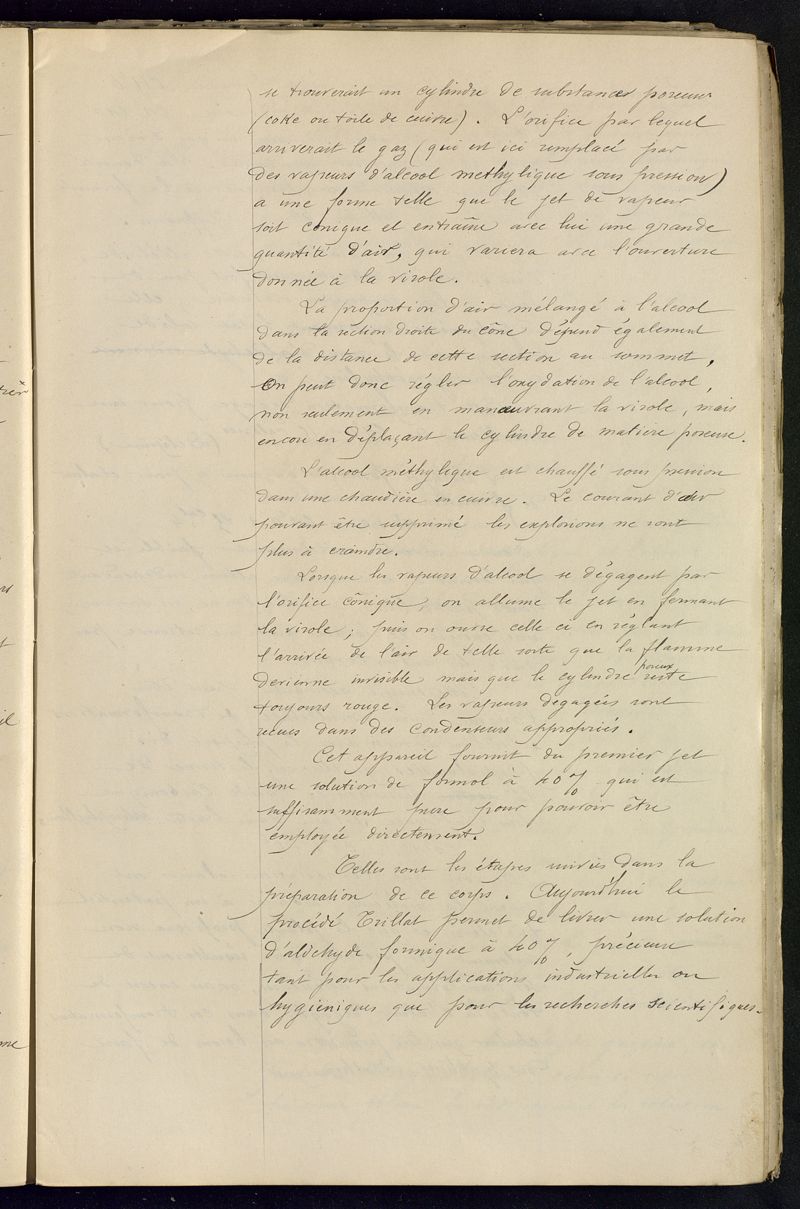 se trouverait un cylindre de substances poreuses
(coke ou toile de cuivre). L'orifice par lequel
arriverait le gaz (qui est ici remplacé par
des vapeurs d'alcool methylique sous pression)
a une forme telle que le jet de vapeur
soit conique et entraîne avec lui une grande
quantité d'air, qui variera avec l'ouverture
donnée à la virole.
La proportion d'air mélangé à l'alcool
dans la section droite du cône dépend également
de la distance de cette section au sommet.
On peut donc régler l'oxydation de l'alcool,
non seulement en manœuvrant la virole, mais
encore en déplaçant le cylindre de matière poreuse.
L'alcool méthylique est chauffé sous pression
dans une chaudière en cuivre. Le courant d'air
pouvant être supprimé les explosions ne sont
plus à craindre.
Lorsque les vapeurs d'alcool se dégagent par
l'orifice cônique, on allume le jet en fermant
la virole; puis on ouvre celle ci en réglant
l'arrivée de l'air de telle sorte que la flamme
devienne invisible mais que le cylindre poreux reste
toujours rouge. Les vapeurs dégagées sont
reçues dans des condenseurs appropriés.
Cet appareil fournit du premier jet
une solution de formol à 40% qui est
suffisamment pure pour pouvoir être
employée directement.
Telles sont les étapes suivies dans la
préparation de ce corps. Aujourd'hui le
procédé Trillat permet de livrer une solution
d'aldehyde formique à 40%, précieuse
tant pour les applications industrielles ou
hygieniques que pour les recherches scientifiques.